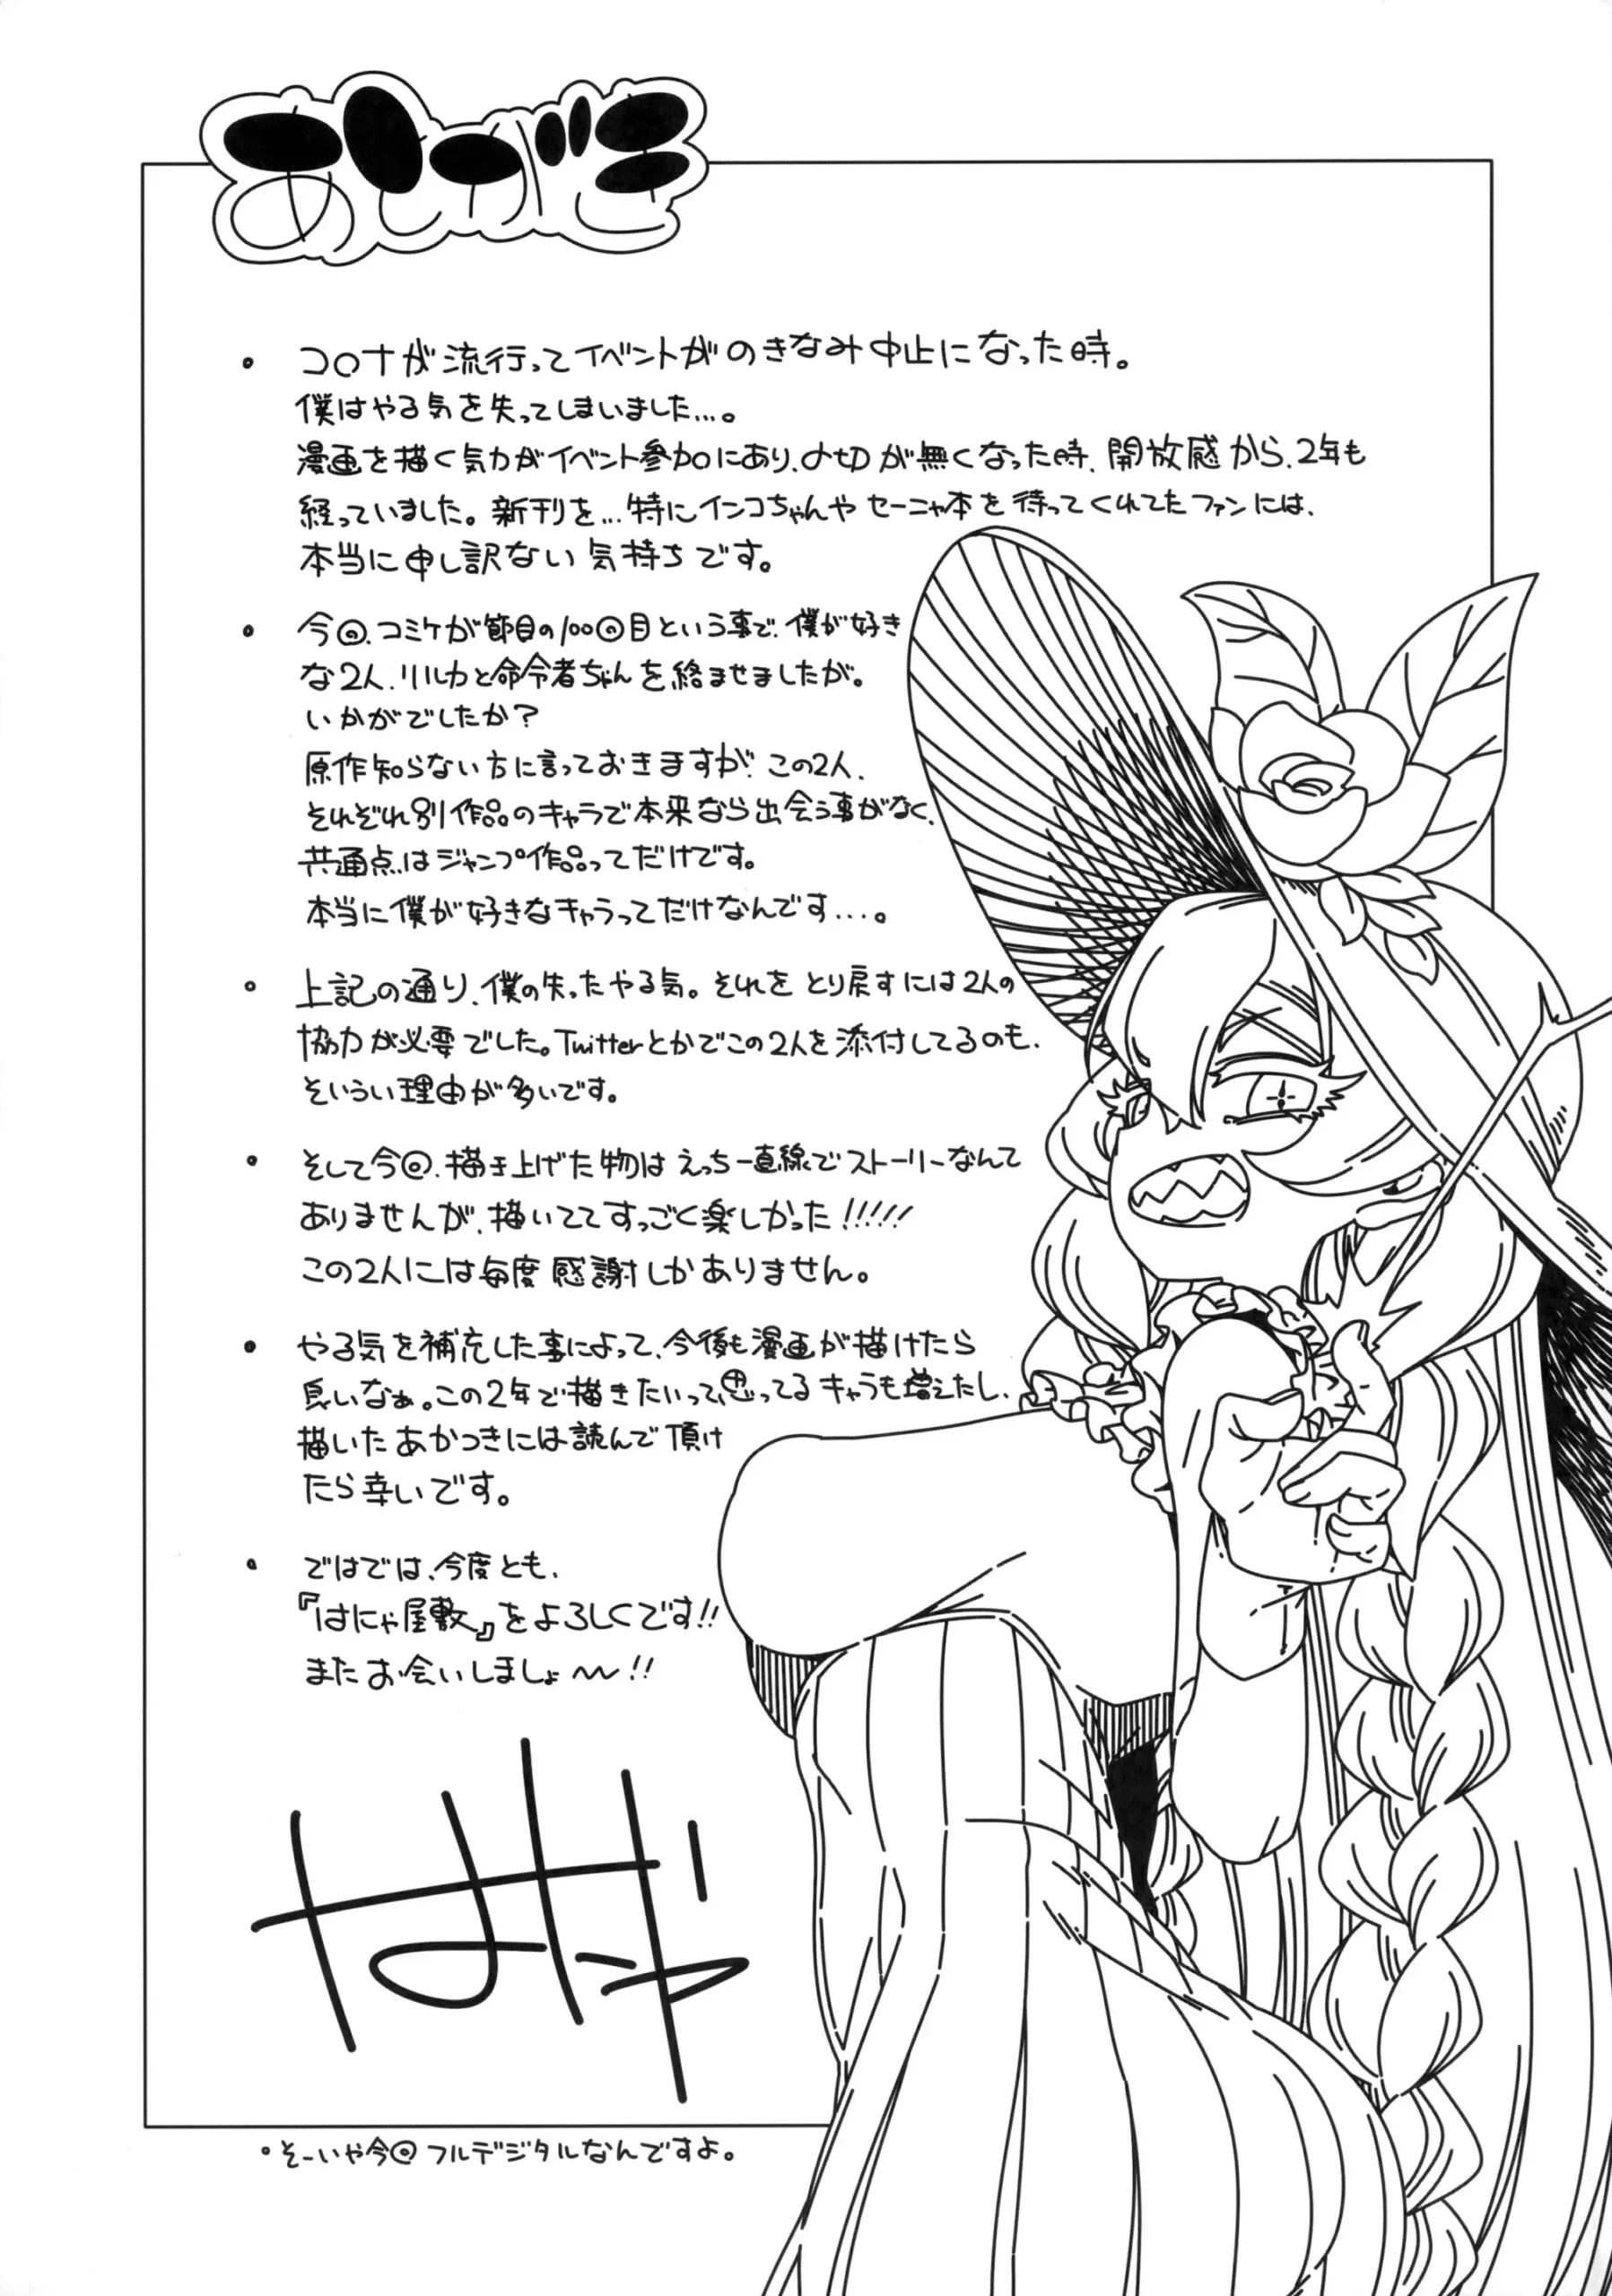 あとがき
• コ〇ナが流行ってイベントがのきなみ中止になった時。
僕はやる気を失ってしまいました…。
漫画を描く気力がイベント参加にあり、〆切が無くなった時、開放感から、2年も
経っていました。新刊を…特にインコちゃんやセーニャ本を待ってくれてたファンには、
本当に申し訳ない気持ちです。
• 今回、コミケが節目の100回目という事で、僕が好き
な2人、リルカと命令者ちゃんを絡ませましたが。
いかがでしたか?
原作知らない方に言っておきますが、この2人、
それぞれ別作品のキャラで本来なら出会う事がなく、
共通点はジャンプ作品ってだけです。
本当に僕が好きなキャラってだけなんです…。
• 上記の通り、僕の失ったやる気。それをとり戻すには2人の
協力が必要でした。Twitterとかでこの2人を添付してるのも、
そいうい理由が多いです。
• そして今回、描き上げた物はえっち一直線でストーリーなんて
ありませんが、描いててすっごく楽しかった!!!!!
この2人には毎度感謝しかありません。
• やる気を補充した事によって、今後も漫画が描けたら
良いなぁ。この2年で描きたいって思ってるキャラも増えたし、
描いたあかつきには読んで頂け
たら幸いです。
• ではでは、今度とも、
『はにゃ屋敷』をよろしくです!!
またお会いしましょ〜!!
はにゃ
• そーいや今回フルデジタルなんですよ。